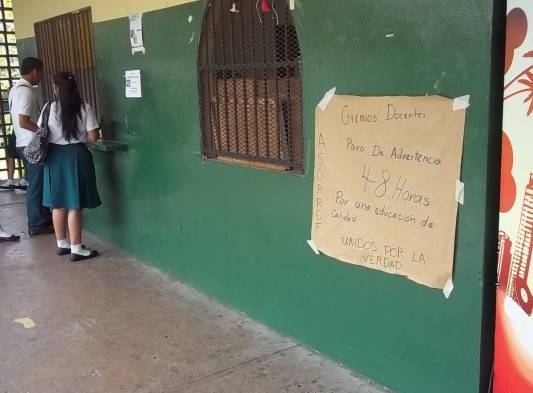 Gremios Docentes
Paro De Advertencia
48 Horas
Por una educación de
calidad
UNIDOS POR LA
VERDAD
ASOPROF